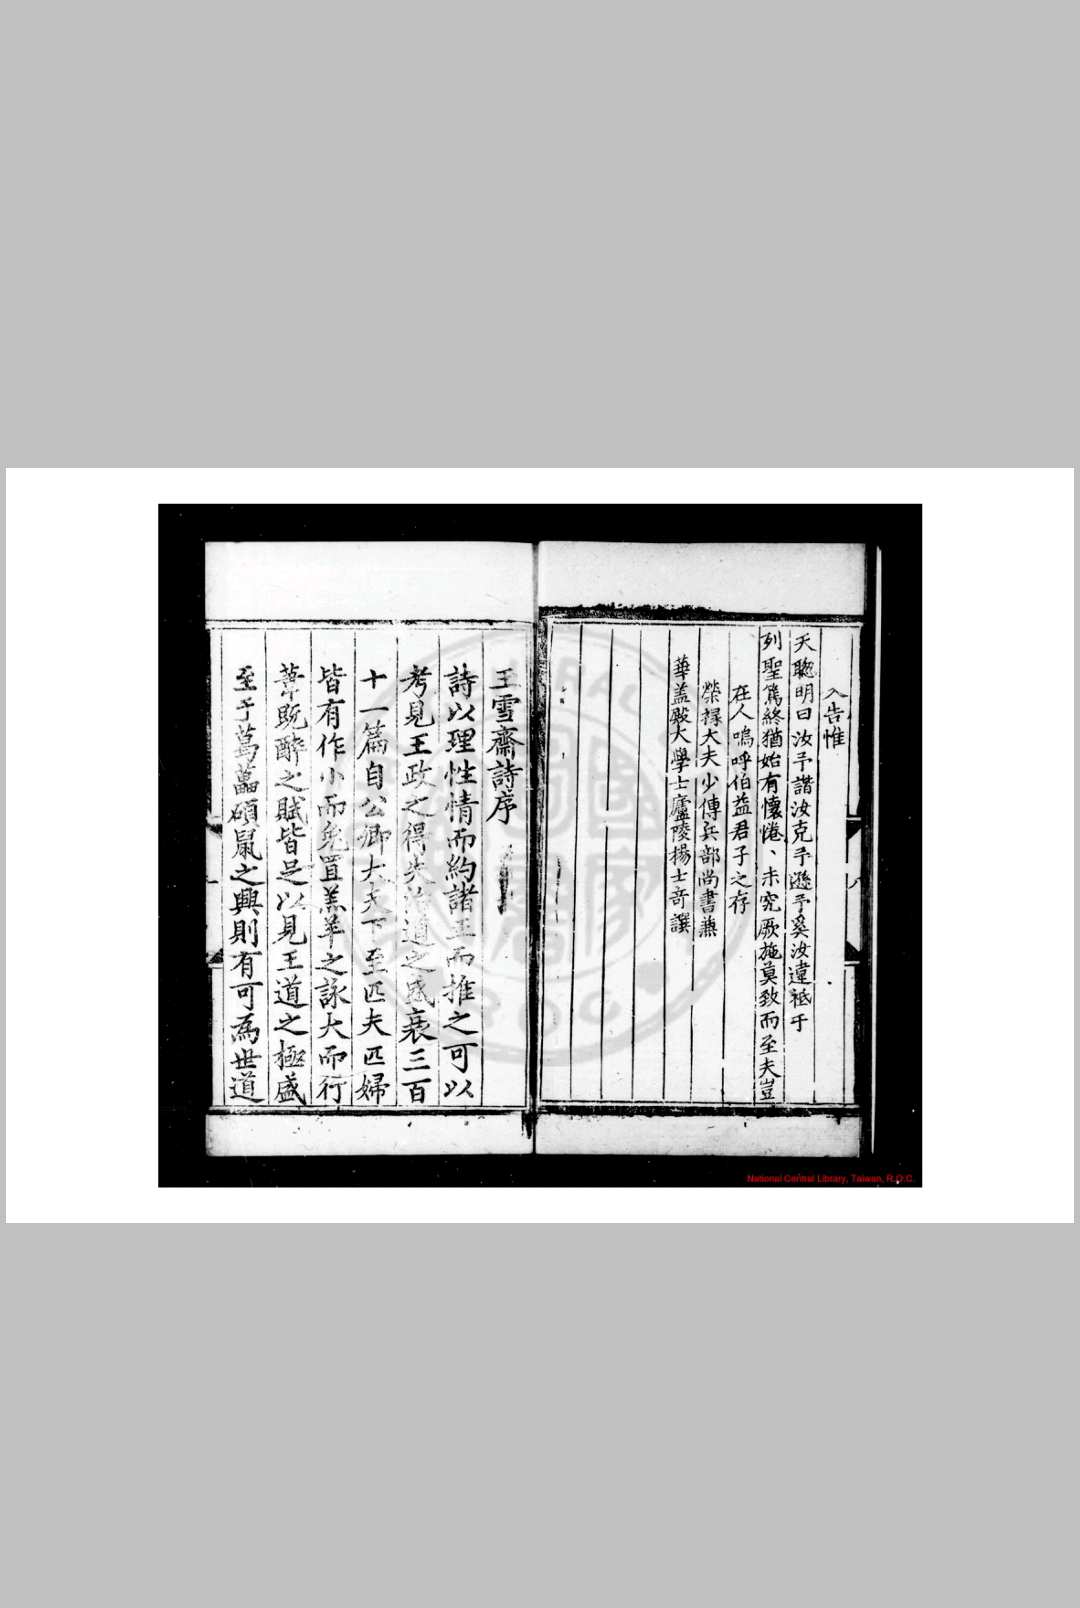 入告惟
天聰明曰汝予諧汝克予遜予奚汝違祗于
列聖篤終猶始有懷惓、未究厥施莫致而至夫豈
在人嗚呼伯益君子之存
榮祿大夫少傅兵部尚書兼
華盖殿大學士廬陵楊士竒譔
王雪齋詩序
詩以理性情而約諸正而推之可以
考見王政之得失治道之盛衰三百
十一篇自公卿大夫下至匹夫匹婦
皆有作小而兔罝羔羊之詠大而行
葦既醉之賦皆足以見王道之極盛
至于萬藟碩鼠之興則有可為世道
National Central Library, Taiwan, R.O.C.